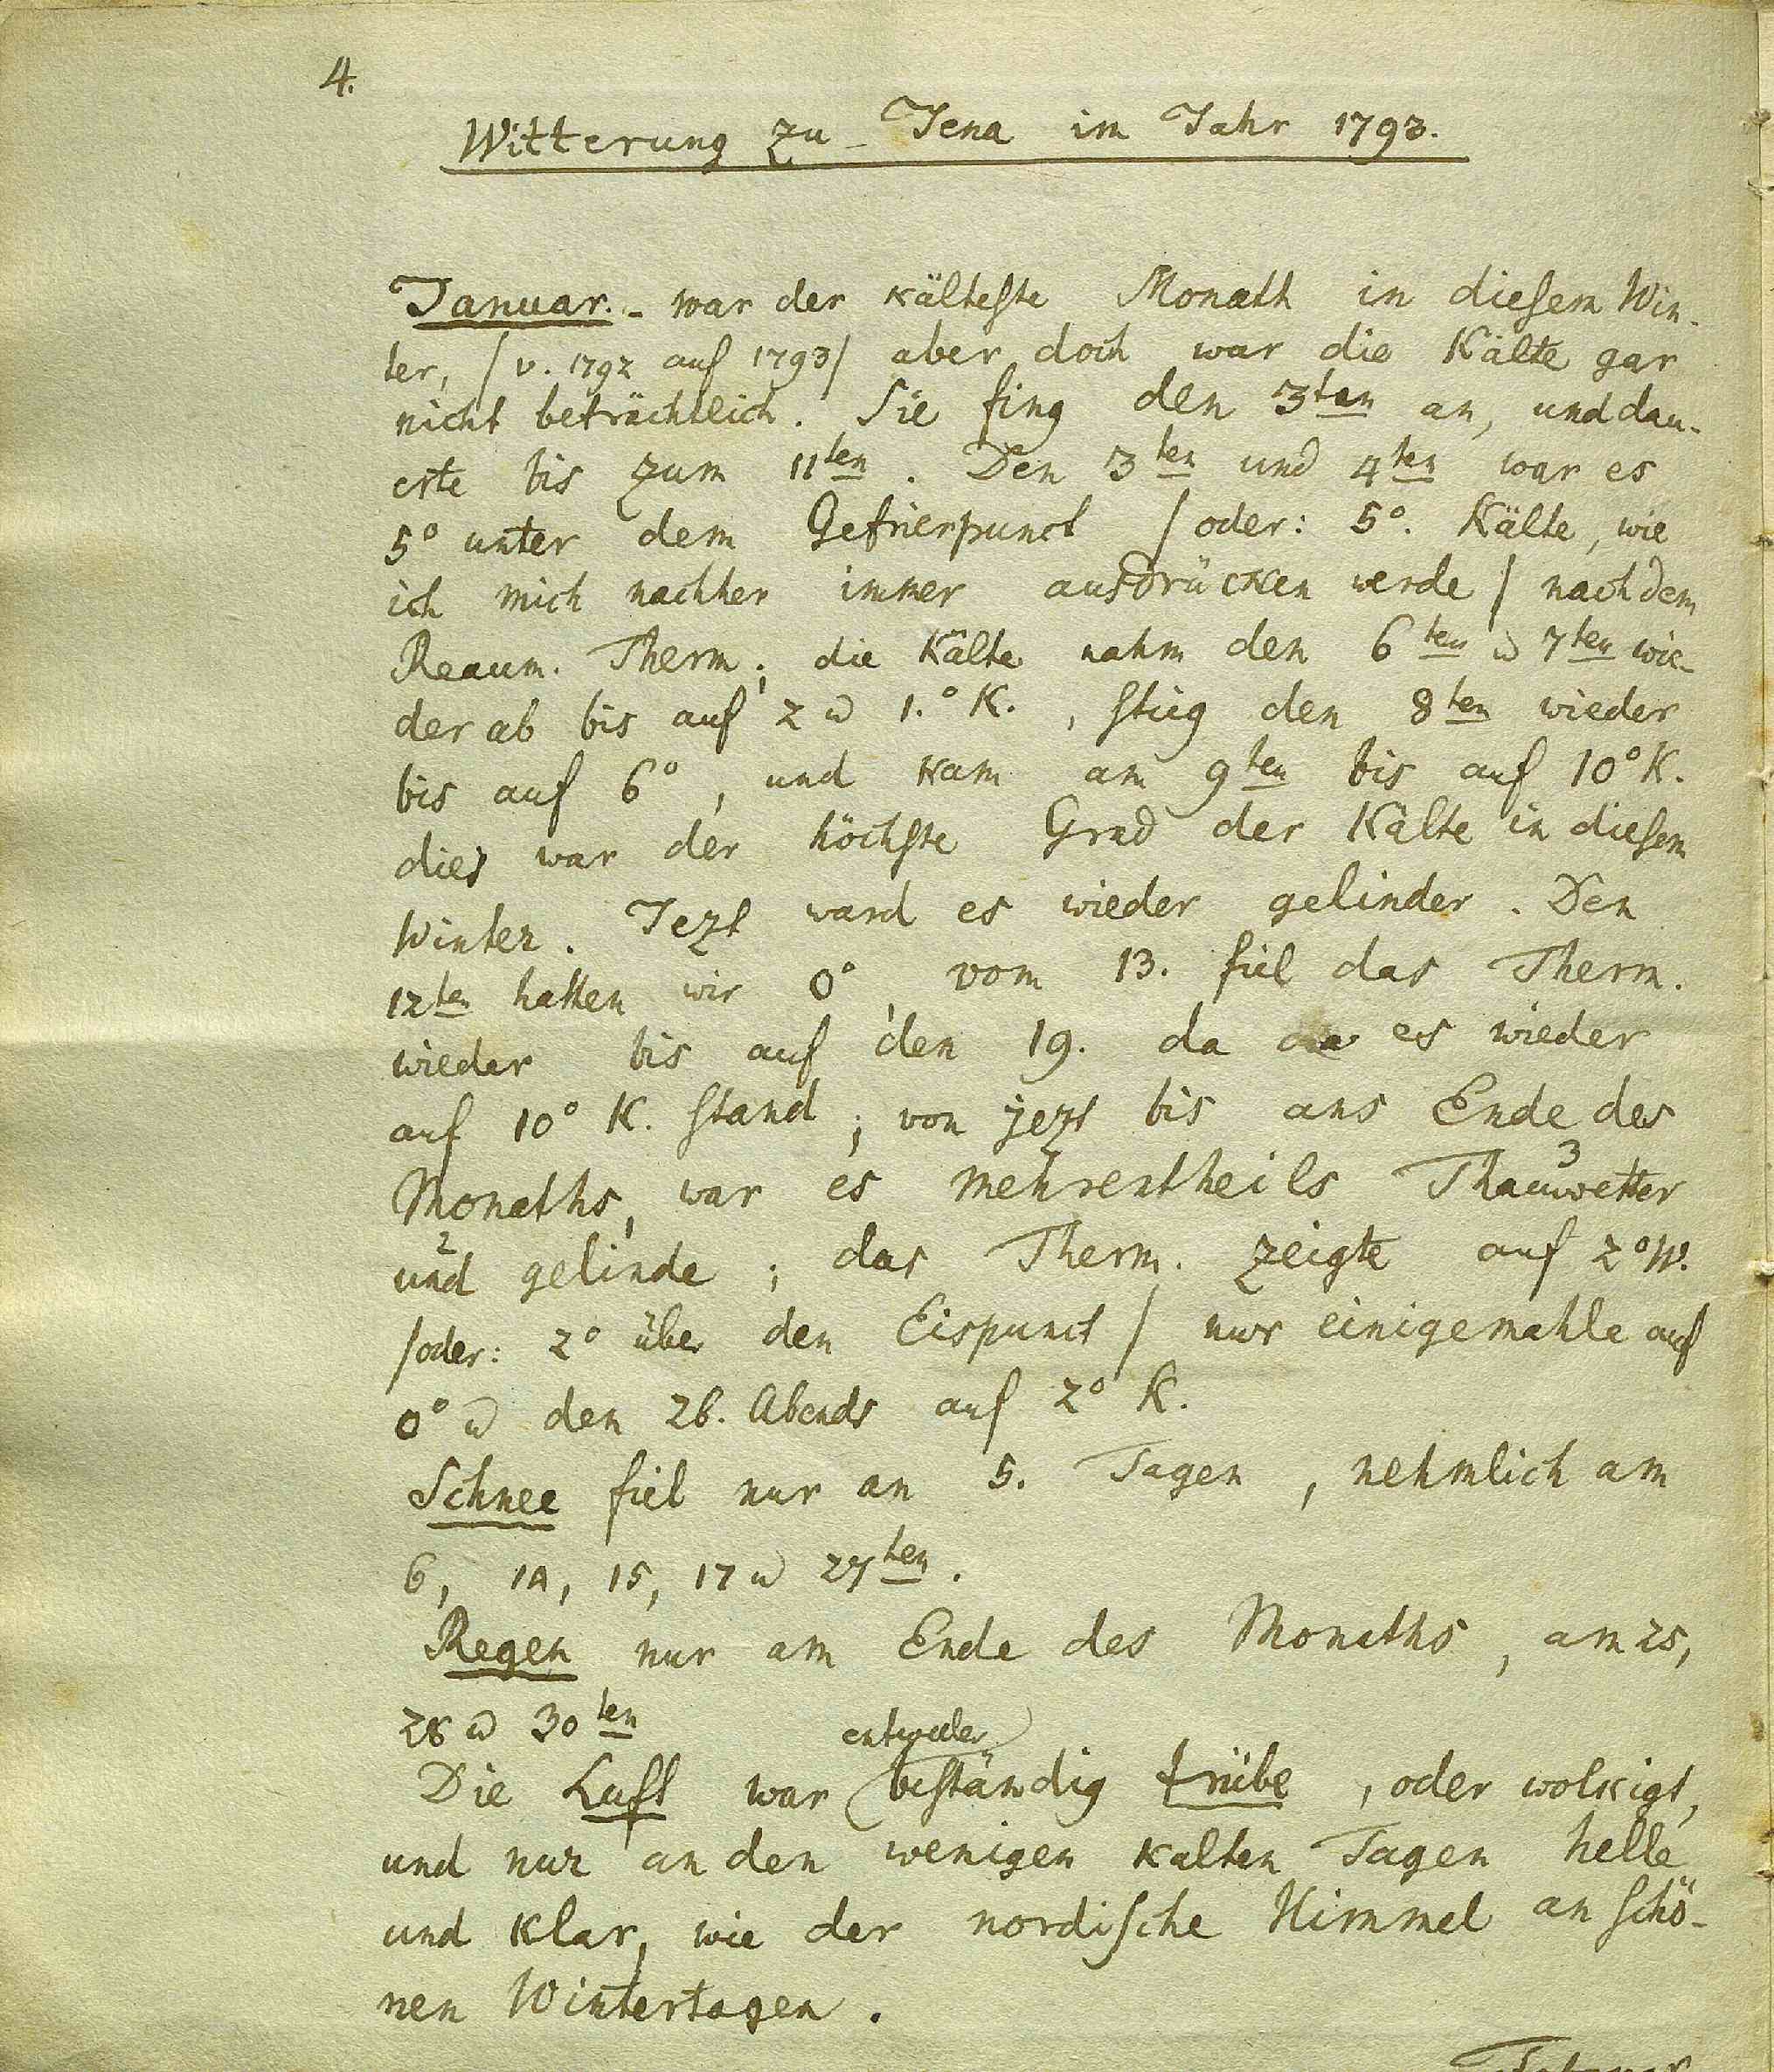 4.
Witterung zu Jena im Jahr 1793.
Januar. - war der kälteſte Monath in dieſem Win-
ter, /v. 1792 auf 1793/ aber doch war die Kälte gar
nicht beträchtlich. Sie fing den 3ten an, und dau-
erte bis zum 11ten. Den 3ten und 4ten war es
5° unter dem Gefrierpunct /oder: 5°. Kälte, wie
ich mich nachher immer ausdrücken werde/ nach dem
Reaum. Therm; die Kälte nahm den 6ten u 7ten wie-
der ab bis auf 2 u 1.° K., ſtieg den 8ten wieder
bis auf 6°, und kam am 9ten bis auf 10° K.
dies war der höchſte Grad der Kälte in dieſem
Winter. Jezt ward es wieder gelinder. Den
12ten hatten wir 0°, vom 13. fiel das Therm.
wieder bis auf den 19. da es wieder
auf 10° K. ſtand; von jezt bis ans Ende des
Monaths, war es mehrentheils Thauwetter 3
und 2 gelinde; das Therm. zeigte auf 2° W.
/oder: 2° über den Eispunct/ nur einigemahle auf
0° u den 26. Abends auf 2° K.
Schnee fiel nur an 5. Tagen, nehmlich am
6, 14, 15, 17 u 27ten.
Regen nur am Ende des Monaths, am 25,
28 u 30ten
entweder
Die Luft war beſtändig trübe, oder wolkigt,
und nur an den wenigen kalten Tagen helle
und klar, wie der nordiſche Himmel an ſchö-
nen Wintertagen.